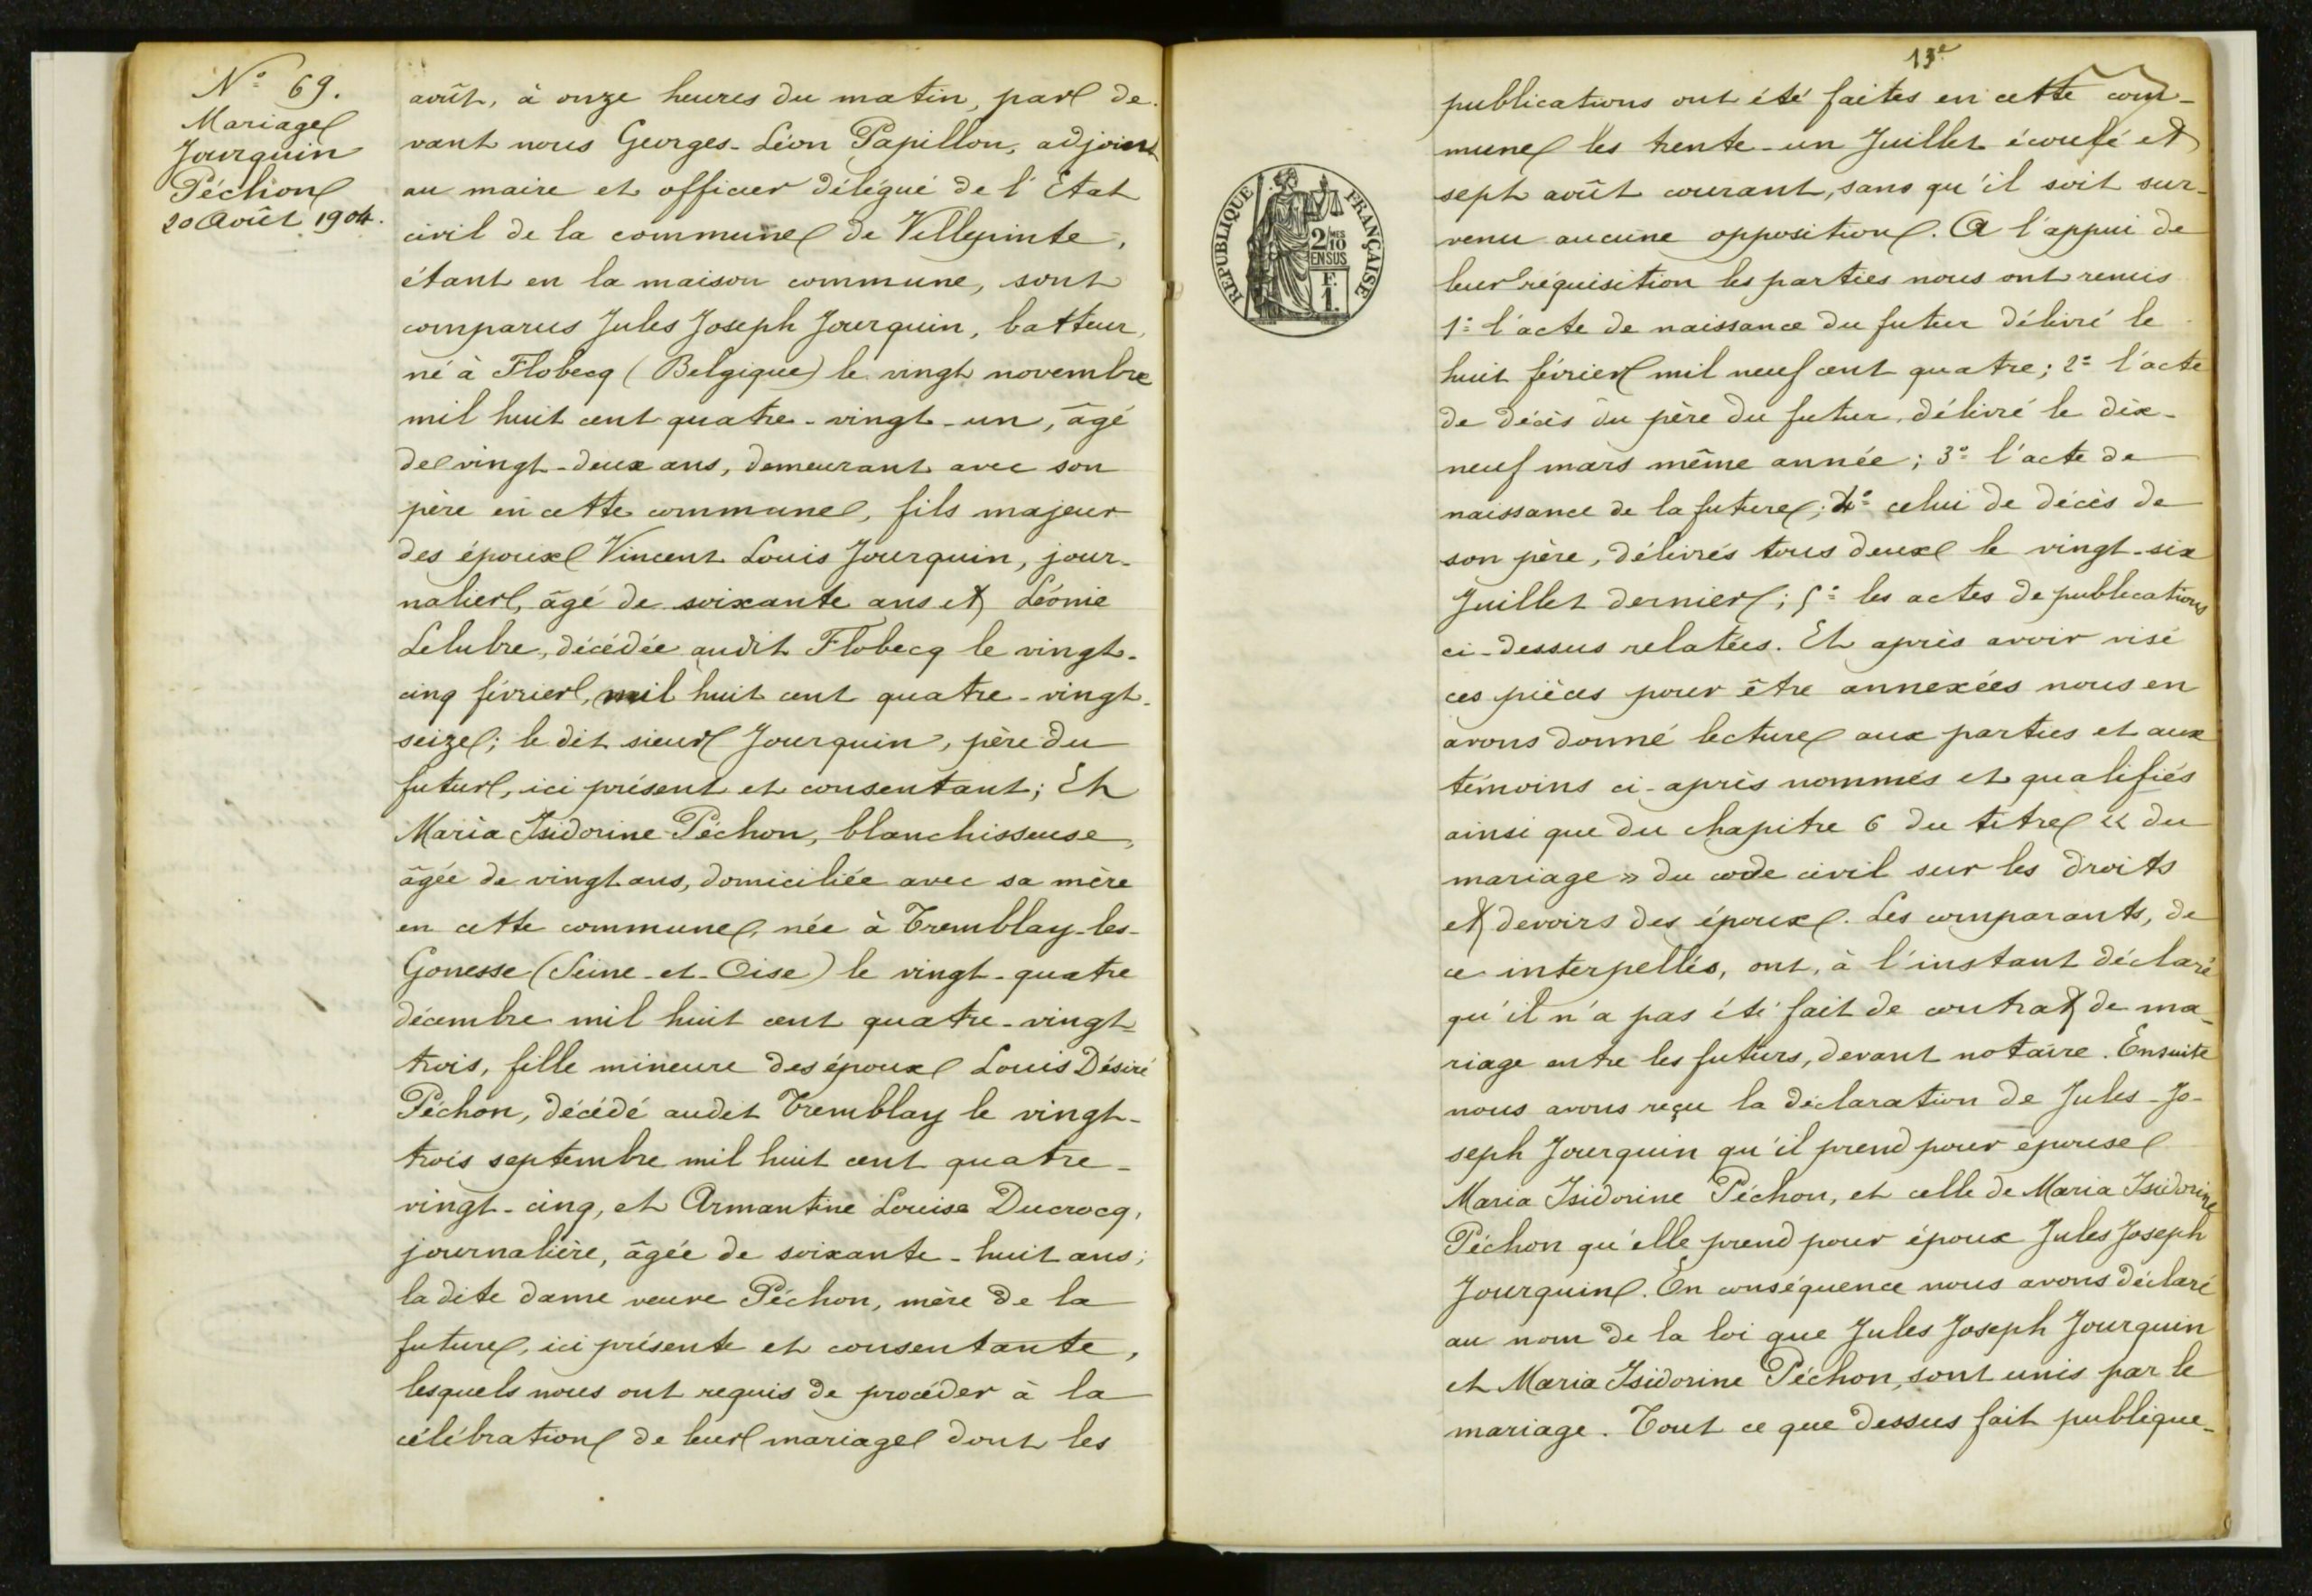 N° 69.
Mariage
Jourquin
Péchon
20 Août 1904.
août, à onze heures du matin, par de-
vant nous Georges-Léon Papillon, adjoint
au maire et officier délégué de l'État
civil de la commune de Villepinte,
étant en la maison commune, sont
comparus Jules Joseph Jourquin, batteur,
né à Flobecq (Belgique) le vingt novembre
mil huit cent quatre-vingt-un, âgé
de vingt-deux ans, demeurant avec son
père en cette commune, fils majeur
des époux Vincent Louis Jourquin, jour-
nalier, âgé de soixante ans et Léonie
Lelubre, décédée audit Flobecq le vingt-
cinq février, mil huit cent quatre-vingt-
seize; le dit sieur Jourquin, père du
futur, ici présent et consentant; Et
Maria Isidorine Péchon, blanchisseuse,
âgée de vingt ans, domiciliée avec sa mère
en cette commune, née à Tremblay-les-
Gonesse (Seine-et-Oise) le vingt-quatre
décembre mil huit cent quatre-vingt-
trois, fille mineure des époux Louis Désiré
Péchon, décédé audit Tremblay le vingt-
trois septembre mil huit cent quatre-
vingt-cinq, et Armantine Louise Ducrocq,
journalière, âgée de soixante-huit ans;
la dite dame veuve Péchon, mère de la
future, ici présente et consentante,
lesquels nous ont requis de procéder à la
célébration de leur mariage dont les
13e
RÉPUBLIQUE FRANÇAISE
2/10 MES
EN SUS
F.
1.
publications ont été faites en cette com-
mune les trente-un Juillet écoulé et
sept août courant, sans qu'il soit sur-
venu aucune opposition. A l'appui de
leur réquisition les parties nous ont remis
1° l'acte de naissance du futur délivré le
huit février mil neuf cent quatre; 2° l'acte
de décès du père du futur, délivré le dix-
neuf mars même année; 3° l'acte de
naissance de la future; 4° celui de décès de
son père, délivrés tous deux le vingt-six
Juillet dernier; 5° les actes de publications
ci-dessus relatées. Et après avoir visé
ces pièces pour être annexées nous en
avons donné lecture aux parties et aux
témoins ci-après nommés et qualifiés
ainsi que du chapitre 6 du titre « du
mariage » du code civil sur les droits
et devoirs des époux. Les comparants, de
ce interpellés, ont, à l'instant déclaré
qu'il n'a pas été fait de contrat de ma-
riage entre les futurs, devant notaire. Ensuite
nous avons reçu la déclaration de Jules-Jo-
seph Jourquin qu'il prend pour épouse
Maria Isidorine Péchon, et celle de Maria Isidorine
Péchon qu'elle prend pour époux Jules Joseph
Jourquin. En conséquence nous avons déclaré
au nom de la loi que Jules Joseph Jourquin
et Maria Isidorine Péchon, sont unis par le
mariage. Tout ce que dessus fait publique-